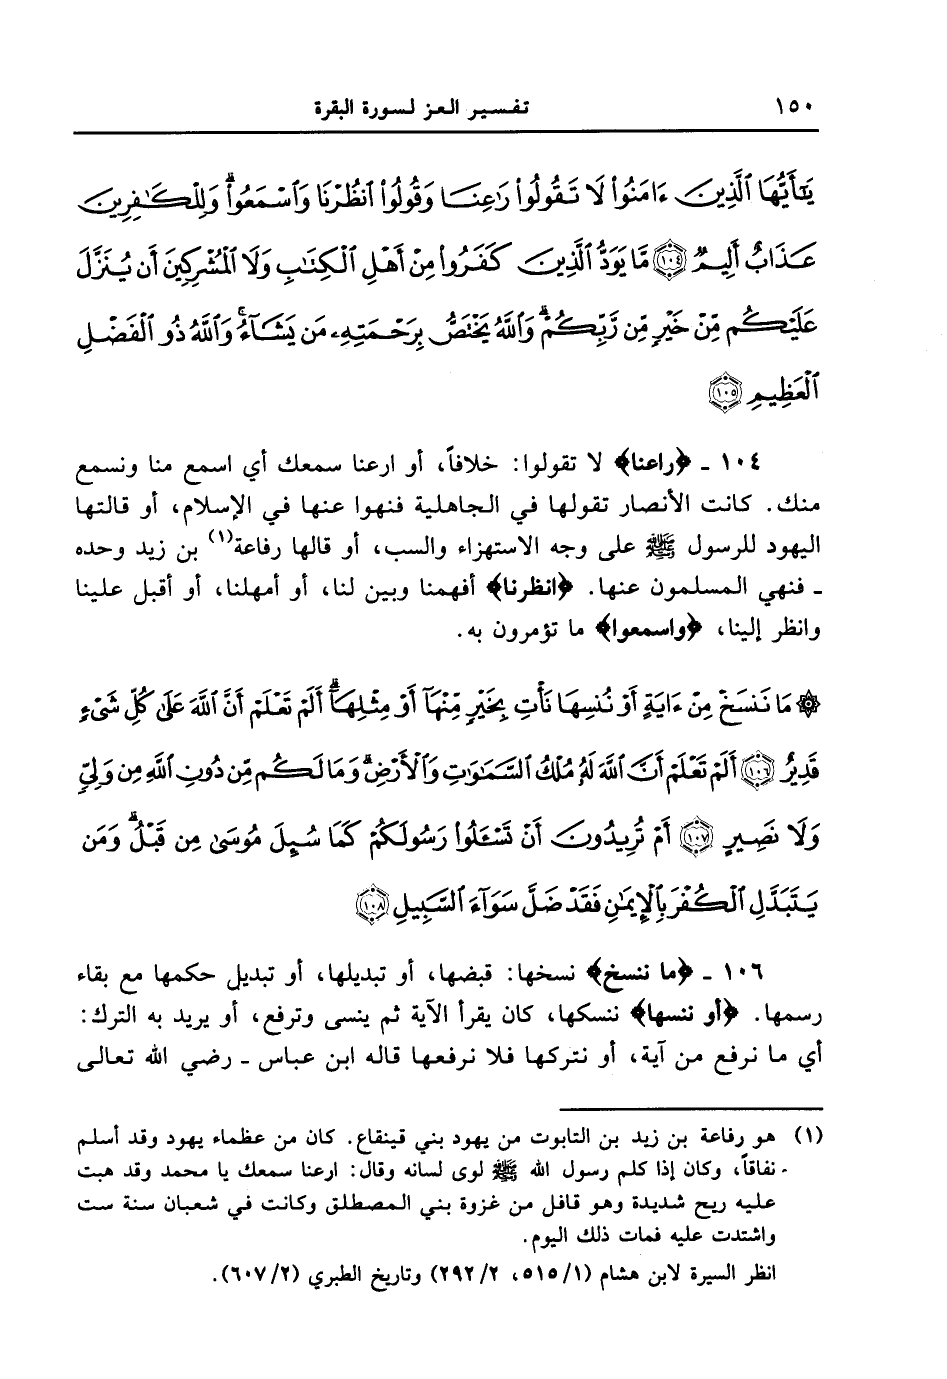 ١٥٠ تفسير العز لسورة البقرة
يَٰٓأَيُّهَا ٱلَّذِينَ ءَامَنُوا۟ لَا تَقُولُوا۟ رَٰعِنَا وَقُولُوا۟ ٱنظُرْنَا وَٱسْمَعُوا۟ ۗ وَلِلْكَٰفِرِينَ
عَذَابٌ أَلِيمٌ ﴿١٠٤﴾ مَّا يَوَدُّ ٱلَّذِينَ كَفَرُوا۟ مِنْ أَهْلِ ٱلْكِتَٰبِ وَلَا ٱلْمُشْرِكِينَ أَن يُنَزَّلَ
عَلَيْكُم مِّنْ خَيْرٍ مِّن رَّبِّكُمْ ۗ وَٱللَّهُ يَخْتَصُّ بِرَحْمَتِهِۦ مَن يَشَآءُ ۚ وَٱللَّهُ ذُو ٱلْفَضْلِ
ٱلْعَظِيمِ ﴿١٠٥﴾
١٠٤ - ﴿راعنا﴾ لا تقولوا: خلافاً، أو ارعنا سمعك أي اسمع منا ونسمع
منك. كانت الأنصار تقولها في الجاهلية فنهوا عنها في الإسلام، أو قالتها
اليهود للرسول ﷺ على وجه الاستهزاء والسب، أو قالها رفاعة(١) بن زيد وحده
- فنهي المسلمون عنها. ﴿انظرنا﴾ أفهمنا وبين لنا، أو أمهلنا، أو أقبل علينا
وانظر إلينا، ﴿واسمعوا﴾ ما تؤمرون به.
۞ مَا نَنسَخْ مِنْ ءَايَةٍ أَوْ نُنسِهَا نَأْتِ بِخَيْرٍ مِّنْهَآ أَوْ مِثْلِهَآ ۗ أَلَمْ تَعْلَمْ أَنَّ ٱللَّهَ عَلَىٰ كُلِّ شَىْءٍ
قَدِيرٌ ﴿١٠٦﴾ أَلَمْ تَعْلَمْ أَنَّ ٱللَّهَ لَهُۥ مُلْكُ ٱلسَّمَٰوَٰتِ وَٱلْأَرْضِ ۗ وَمَا لَكُم مِّن دُونِ ٱللَّهِ مِن وَلِىٍّ
وَلَا نَصِيرٍ ﴿١٠٧﴾ أَمْ تُرِيدُونَ أَن تَسْـَٔلُوا۟ رَسُولَكُمْ كَمَا سُئِلَ مُوسَىٰ مِن قَبْلُ ۗ وَمَن
يَتَبَدَّلِ ٱلْكُفْرَ بِٱلْإِيمَٰنِ فَقَدْ ضَلَّ سَوَآءَ ٱلسَّبِيلِ ﴿١٠٨﴾
١٠٦ - ﴿ما ننسخ﴾ نسخها: قبضها، أو تبديلها، أو تبديل حكمها مع بقاء
رسمها. ﴿أو ننسها﴾ ننسكها، كان يقرأ الآية ثم ينسى وترفع، أو يريد به الترك:
أي ما نرفع من آية، أو نتركها فلا نرفعها قاله ابن عباس - رضي الله تعالى
(١) هو رفاعة بن زيد بن التابوت من يهود بني قينقاع. كان من عظماء يهود وقد أسلم
نفاقاً، وكان إذا كلم رسول الله ﷺ لوى لسانه وقال: ارعنا سمعك يا محمد وقد هبت
عليه ريح شديدة وهو قافل من غزوة بني المصطلق وكانت في شعبان سنة ست
واشتدت عليه فمات ذلك اليوم.
انظر السيرة لابن هشام (١/ ٥١٥، ٢/ ٢٩٢) وتاريخ الطبري (٢/ ٦٠٧).